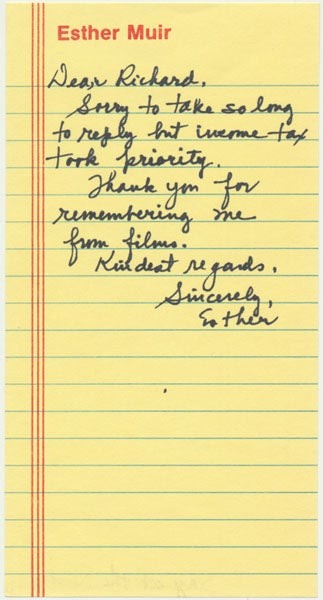 Esther Muir
Dear Richard,
Sorry to take so long
to reply but income tax
took priority.
Thank you for
remembering me
from films.
Kindest regards,
Sincerely,
Esther